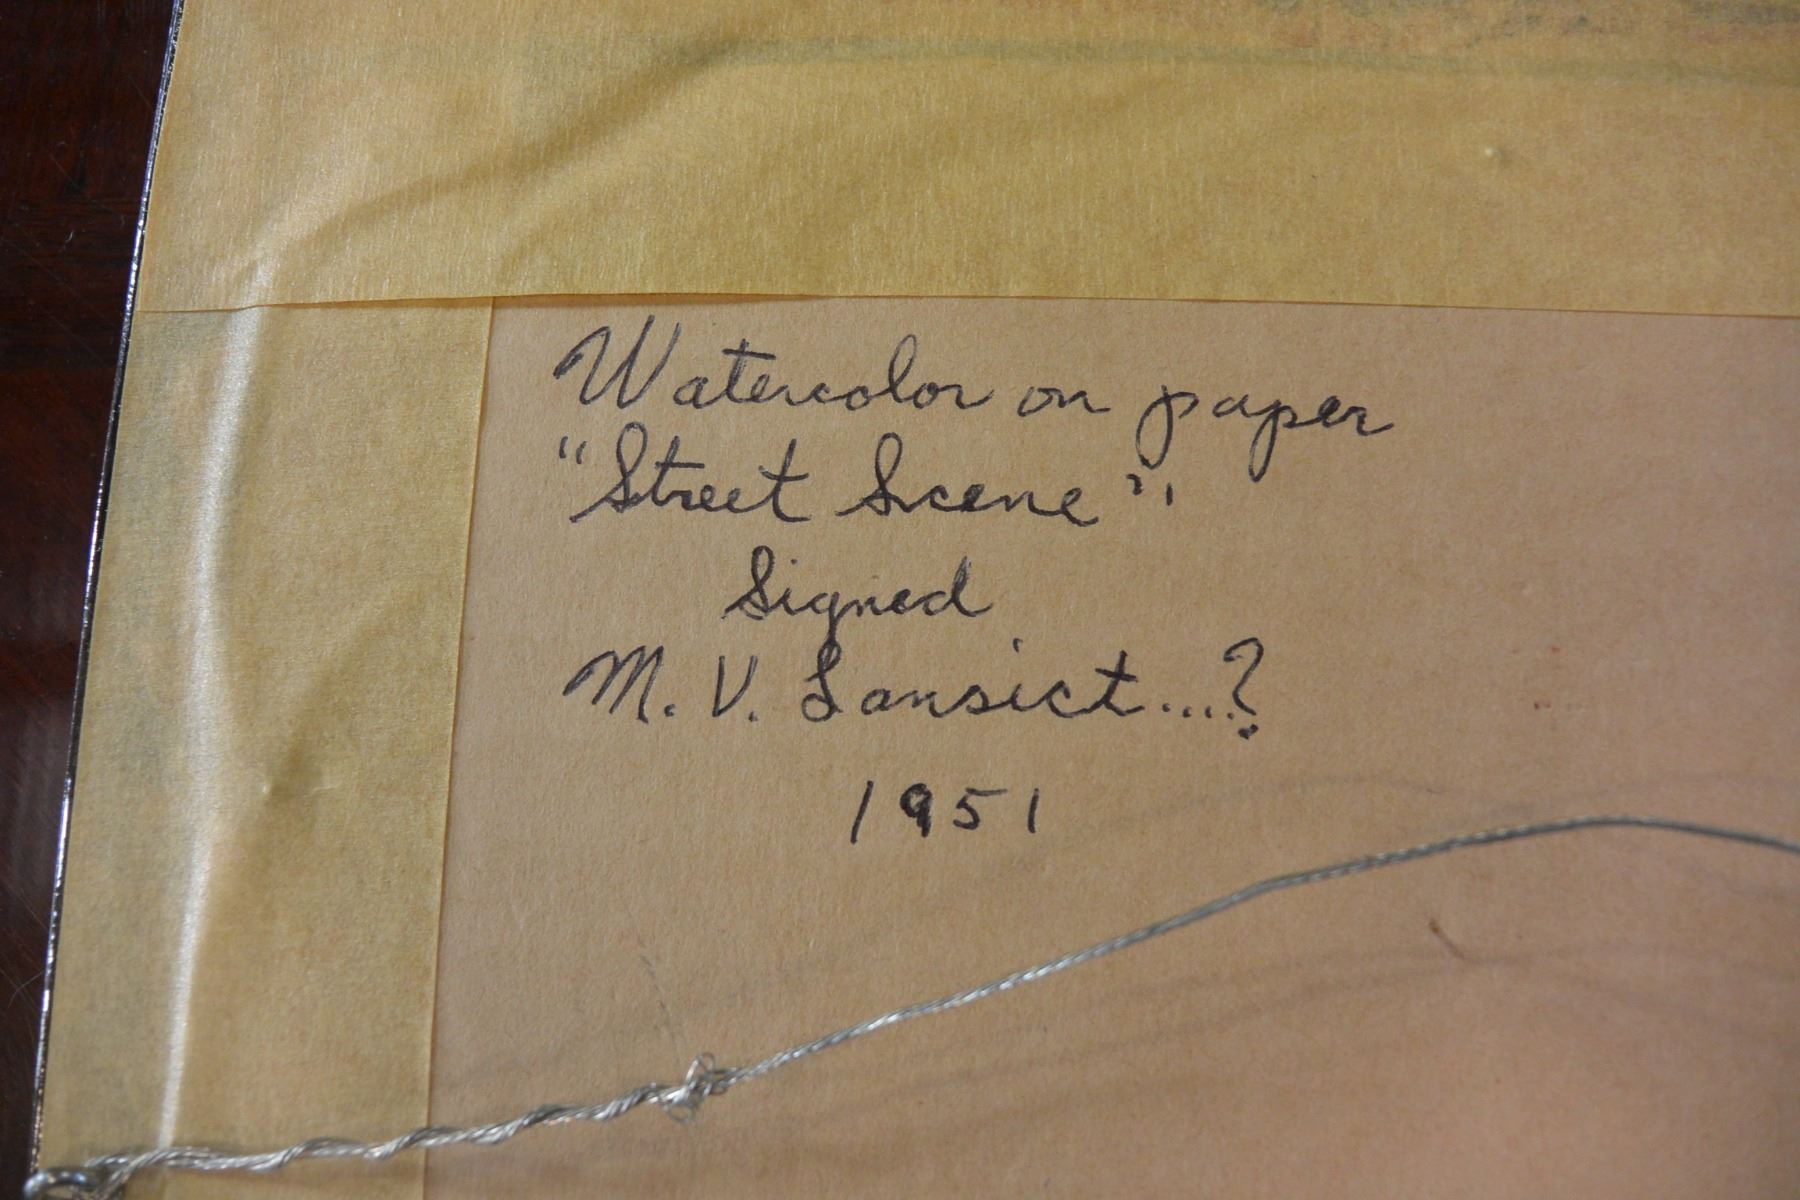 Watercolor on paper
"Street Scene",
Signed
M. V. Lansict....?
1951